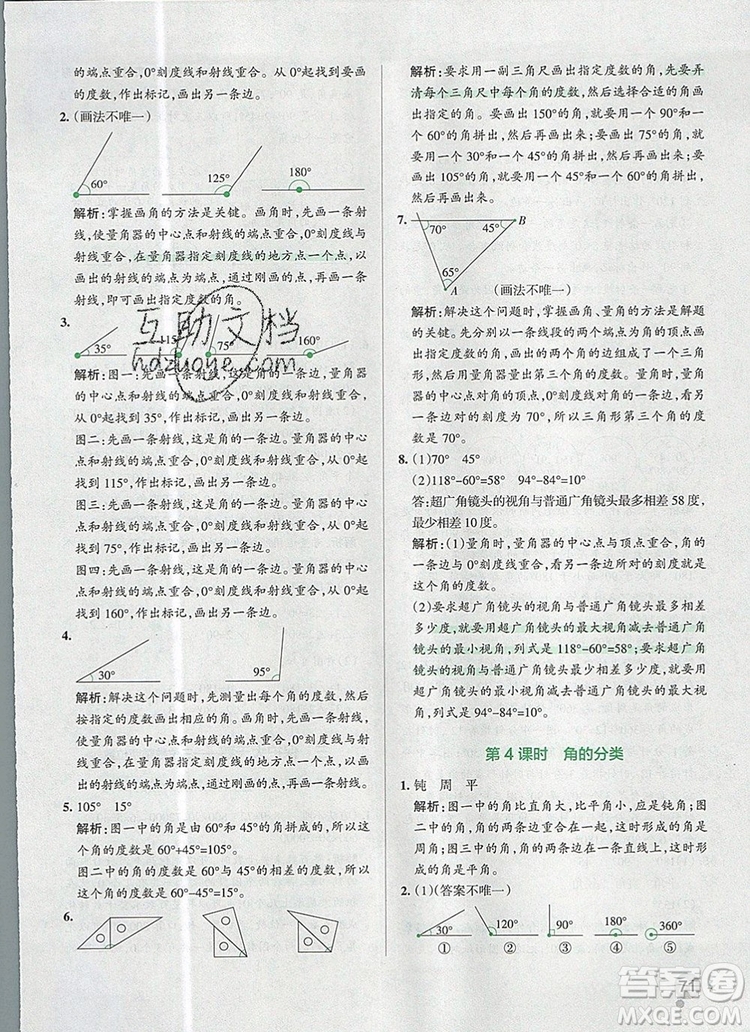 的端点重合,0°刻度线和射线重合。从0°起找到要画
的度数,作出标记,画出另一条边。
2. (画法不唯一)
60° 125° 180°
解析:掌握画角的方法是关键。画角时,先画一条射
线,使量角器的中心点和射线的端点重合,0°刻度线
与射线重合,在量角器指定刻度线的地方点一个点,
以画出的射线的端点为端点,通过刚画的点,再画一
条射线,即可画出指定度数的角。
3.
35° 115° 75° 160°
互助文档
hdzuoye.com
解析:图一:先画一条射线,这是角的一条边。量角器
的中心点和射线的端点重合,0°刻度线和射线重合。
从0°起找到35°,作出标记,画出另一条边。
图二:先画一条射线,这是角的一条边。量角器的中心
点和射线的端点重合,0°刻度线和射线重合。从0°起
找到115°,作出标记,画出另一条边。
图三:先画一条射线,这是角的一条边。量角器的中心
点和射线的端点重合,0°刻度线和射线重合。从0°起
找到75°,作出标记,画出另一条边。
图四:先画一条射线,这是角的一条边。量角器的中心
点和射线的端点重合,0°刻度线和射线重合。从0°起
找到160°,作出标记,画出另一条边。
4.
30° 95°
解析:解决这个问题时,先测量出每个角的度数,然后
按指定的度数画出相应的角。画角时,先画一条射线,
使量角器的中心点和射线的端点重合,0°刻度线和射
线重合。从0°起找到要画的度数,作出标记,画出另
一条边。
5. 105° 15°
解析:图一中的角是由60°和45°的角拼成的,所以这
个角的度数是60°+45°=105°。
图二中的角的度数是60°与45°的角相差的度数,所
以这个角的度数是60°-45°=15°。
6.
解析:要求用一副三角尺画出指定度数的角,先要弄
清每个三角尺中每个角的度数,然后选择合适的角画
出指定的角。要画出150°的角,就要用一个90°和一
个60°的角拼出,然后再画出来;要画出75°的角,就
要用一个30°和一个45°的角拼出,然后再画出来;要
画出120°的角,就要用一个90°和一个30°的角拼出,
然后再画出来。
7.
70° 45° B
65°
A (画法不唯一)
解析:解决这个问题,掌握画角、量角的方法是解题
的关键。先分别以一条线段的两个端点为顶点画出两
个已知度数的角,两个角的边组成了一个三角形,然后
用量角器量出第三个角的度数。用量角器的中心点
对应角的顶点,0°刻度线对应角的一条边,看角的另
一条边对应的刻度为70°,所以三角形第三个角的度
数为70°。
8. (1)70° 45°
(2)118°-60°=58° 94°-84°=10°
答:超广角镜头的视角与普通广角镜头最多相差58度,
最少相差10度。
解析:(1)量角时,量角器的中心点与顶点重合,量角
器的0°刻度线与角的一条边重合,看另一条边与量角
器重合的刻度是多少,就是这个角的度数。
(2)要求超广角镜头的视角与普通广角镜头最多相差
多少度,就要用超广角镜头的最大视角减去普通广角
镜头的最小视角,列式是118°-60°=58°;要求超广角
镜头的视角与普通广角镜头最少相差多少度,就要用
超广角镜头的最小视角减去普通广角镜头的最大视
角,列式是94°-84°=10°。
第4课时 角的分类
1. 钝 周 平
解析:图一中的角比直角大,比平角小,应是钝角;图
二中的角,角的两条边重合在一起,这时形成的角是
周角;图三中的角,角的两条边在一条直线上,这时形
成的角是平角。
2. (1)(答案不唯一)
30° 120° 90° 180° 360°
① ② ③ ④ ⑤
71
答案圈
MXQE.COM